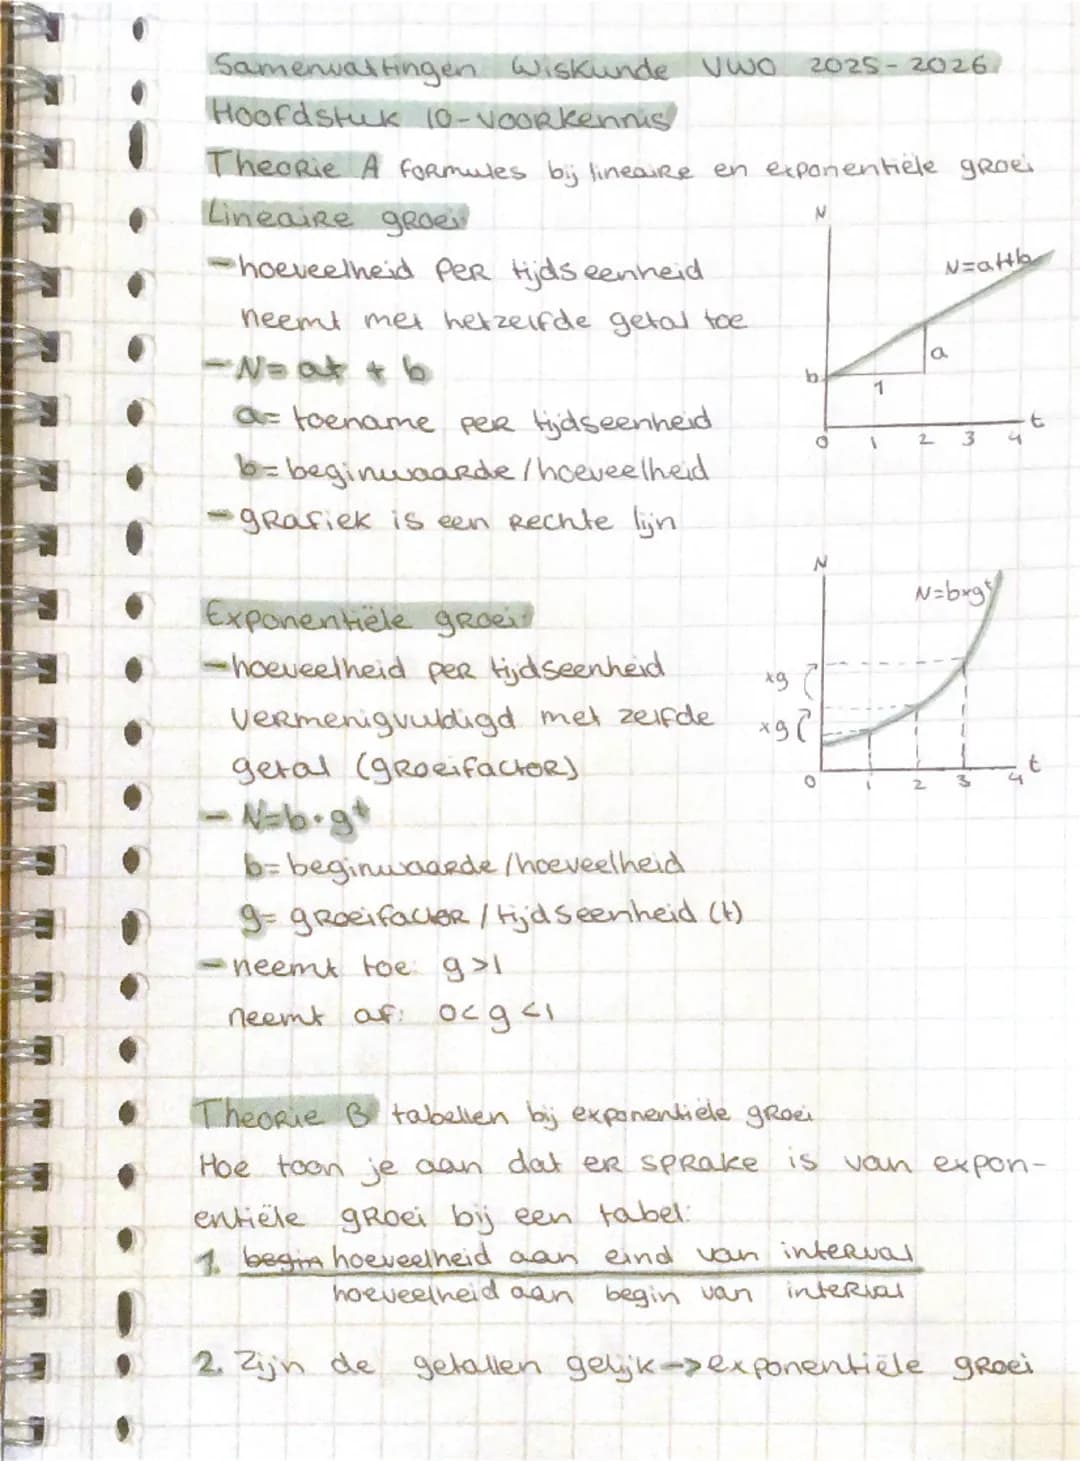 Samenvattingen Wiskunde VWO 2025-2026
Hoofdstuk 10-voorkennis
Theorie A formules bij lineaire en exponentiële groei
Lineaire groei
-hoeveelheid per tijdseenheid
neemt met hetzelfde getal toe
-N= at + b
a= toename per tijdseenheid
b= beginwaarde/hoeveelheid
-grafiek is een rechte lijn
N
N=at+b
a
b
1
0 1 2 3 4 t
Exponentiële groei
-hoeveelheid per tijdseenheid
vermenigvuldigd met zelfde
getal (groeifactor)
- N=b·g^t
b= beginwaarde/hoeveelheid
g= groeifactor/tijdseenheid (t)
-neemt toe: g>1
neemt af: 0<g<1
N
N=b×g^t
×g
×g
0 1 2 3 4 t
Theorie B tabellen bij exponentiële groei
Hoe toon je aan dat er sprake is van expon-
entiële groei bij een tabel:
1. begin hoeveelheid aan eind van interval
hoeveelheid aan begin van interval
2. Zijn de getallen gelijk->exponentiële groei